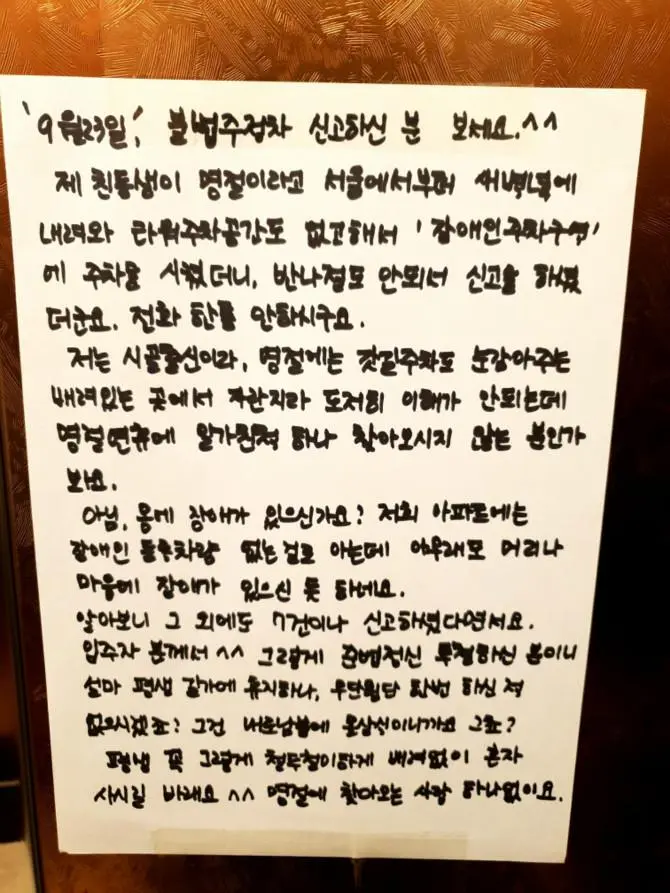 '9월23일,' 불법주정차 신고하신 분 보세요.^^
제 친동생이 명절이라고 서울에서부터 새벽녘에
내려와 타워주차공간도 없고해서 '장애인주차구역'
에 주차를 시켰더니, 반나절도 안되서 신고를 하셨
더군요. 전화 한통 안하시구요.
저는 시골출신이라, 명절에는 갓길주차도 눈감아주는
배려있는 곳에서 자란지라 도저히 이해가 안되는데
명절연휴에 일가친척 하나 찾아오시지 않는 분인가
봐요.
아님, 몸에 장애가 있으신가요? 저희 아파트에는
장애인 등록차량 없는걸로 아는데 아무래도 머리나
마음에 장애가 있으신 듯 하네요.
알아보니 그 외에도 7건이나 신고하셨다면서요.
입주자 분께서 ^^ 그렇게 준법정신 투철하신 분이니
설마 평생 길가에 휴지하나, 무단횡단 한번 하신 적
없으시겠죠? 그건 내로남불에 몰상식이니가요 그쵸?
평생 꼭 그렇게 철두철미하게 배려없이 혼자
사시길 바래요 ^^ 명절에 찾아오는 사람 하나없이요.